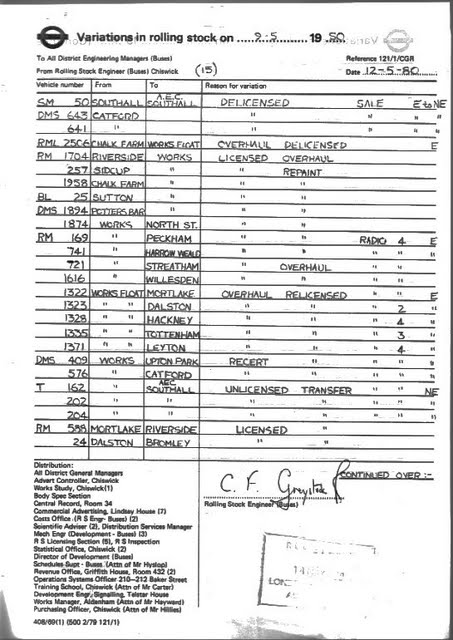 Variations in rolling stock on 9.5. 1980
To All District Engineering Managers (Buses) Reference 121/1/CGR
From Rolling Stock Engineer (Buses) Chiswick (15) Date 12-5-80
Vehicle number From To Reason for variation
SM 50 SOUTHALL A.E.C. SOUTHALL DELICENSED SALE E to NE
DMS 643 CATFORD " " " " "
641 " " " " " "
RML 2506 CHALK FARM WORKS FLOAT OVERHAUL DELICENSED E
RM 1704 RIVERSIDE WORKS LICENSED OVERHAUL
257 SIDCUP " " REPAINT
1958 CHALK FARM " " "
BL 25 SUTTON " " "
DMS 1894 POTTERS BAR " " "
1874 WORKS NORTH ST. " "
RM 169 " PECKHAM " " RADIO 4 E
741 " HARROW WEALD " " " " "
721 " STREATHAM " OVERHAUL " "
1616 " WILLESDEN " " " "
1322 WORKS FLOAT MORTLAKE OVERHAUL RELICENSED " " E
1323 " " DALSTON " " " 2 "
1328 " " HACKNEY " " " 4 "
1335 " " TOTTENHAM " " " 3 "
1371 " " LEYTON " " " 4 "
DMS 409 WORKS UPTON PARK " RECERT " " "
576 " CATFORD " " " " "
T 162 " AEC SOUTHALL UNLICENSED TRANSFER " " NE
202 " " " " " " "
204 " " " " " " "
RM 588 MORTLAKE RIVERSIDE LICENSED "
24 DALSTON BROMLEY " "
Distribution:
All District General Managers
Advert Controller, Chiswick(1)
Works Study, Chiswick(1)
Body Spec Section
Central Record, Room 34
Commercial Advertising, Lindsey House (7)
Costs Office (R S Engr- Buses) (2)
Scientific Adviser (2), Distribution Services Manager
Mech Engr (Development - Buses) (3)
R S Licensing Section (5), R S Inspection
Statistical Office, Chiswick (2)
Director of Development (Buses)
Schedules Supt - Buses (Attn of Mr Hyslop)
Revenue Office, Griffith House, Room 432 (2)
Operations Systems Officer 210-212 Baker Street
Training School, Chiswick (Attn of Mr Carter)
Development Engr, Signalling, Telstar House
Works Manager, Aldenham (Attn of Mr Hayward)
Purchasing Officer, Chiswick (Attn of Mr Hillies)
408/69(1) (500 2/79 121/1)
CONTINUED OVER :-
C. F.
Rolling Stock Engineer (Buses)